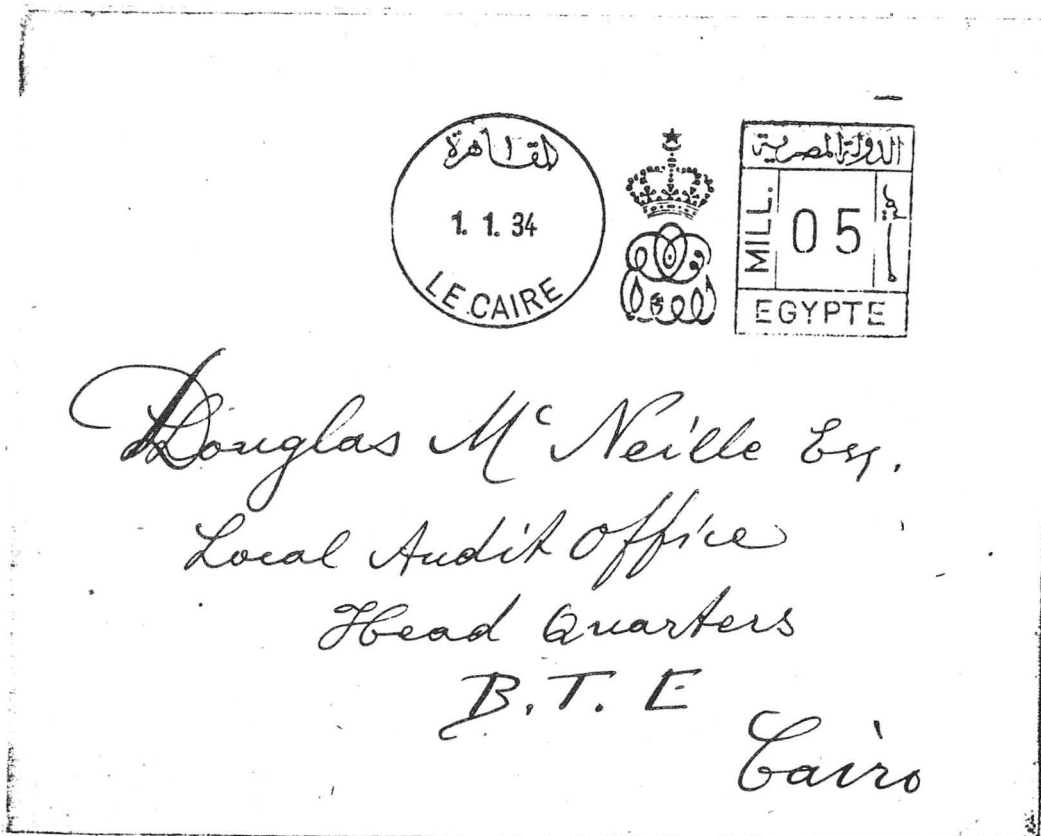 القاهرة
1. 1. 34
LE CAIRE
الدولة المصرية
MILL. 05 مليم
EGYPTE
Douglas Mc Neille Esq.
Local Audit Office
Head Quarters
B.T. E
Cairo